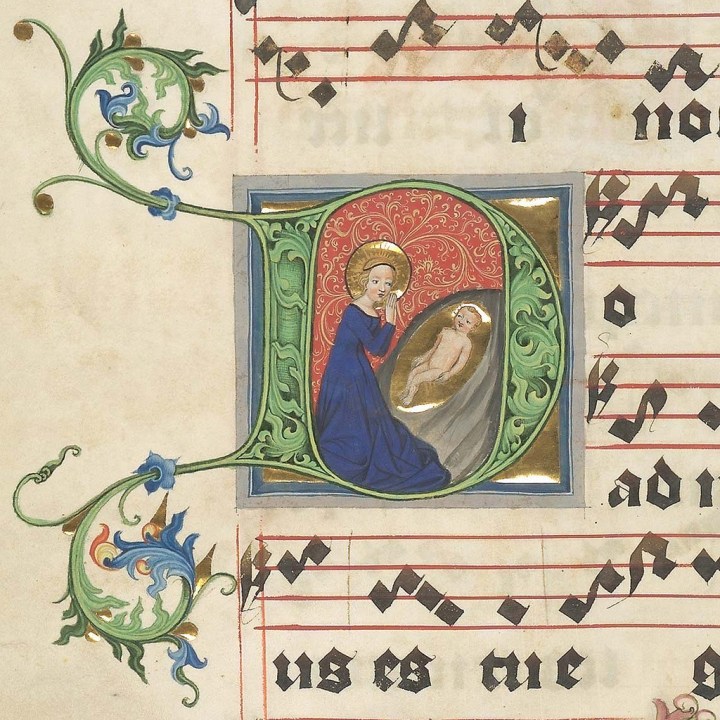 i no
D o
ad
us es tu e g